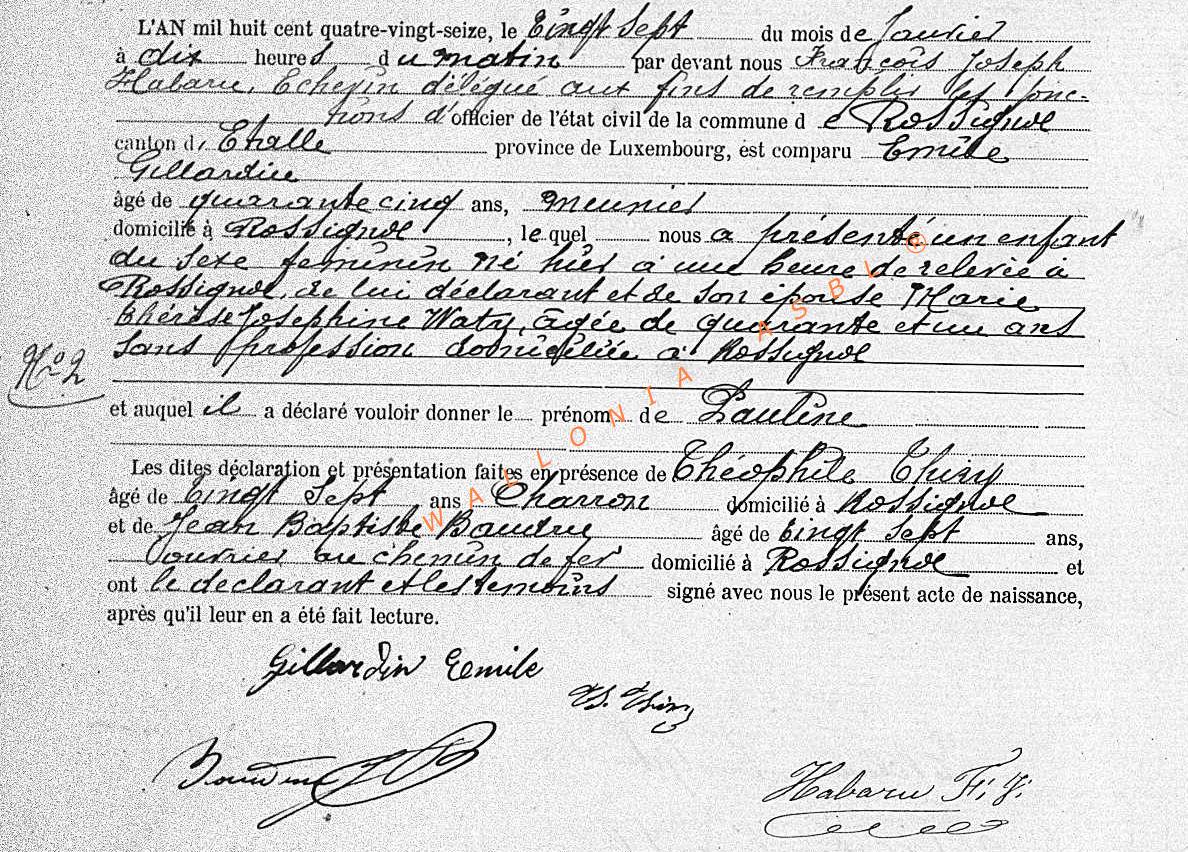 L'AN mil huit cent quatre-vingt-seize, le Vingt Sept du mois de Janvier
à dix heures du matin par devant nous François Joseph
Habaru, Echevin délégué aux fins de remplir les fonc-
tions d'officier de l'état civil de la commune de Rossignol
canton d'Etalle province de Luxembourg, est comparu Emile
Gillardin
âgé de quarante cinq ans, meunier
domicilié à Rossignol, lequel nous a présenté un enfant
du sexe féminin né hier à une heure de relevée à
Rossignol, de lui déclarant et de son épouse Marie
Thérèse Josephine Watry, âgée de quarante et un ans
sans profession domiciliée à Rossignol
No 2
et auquel il a déclaré vouloir donner le prénom de Pauline
Les dites déclaration et présentation faites en présence de Théophile Thiry
âgé de Vingt Sept ans Charron domicilié à Rossignol
et de Jean Baptiste Baudru âgé de Vingt Sept ans,
ouvrier au chemin de fer domicilié à Rossignol et
ont le déclarant et les temoins signé avec nous le présent acte de naissance,
après qu'il leur en a été fait lecture.
Gillardin Emile
Th. Thiry
Habaru F. J.
WALLONIA ASBL ®